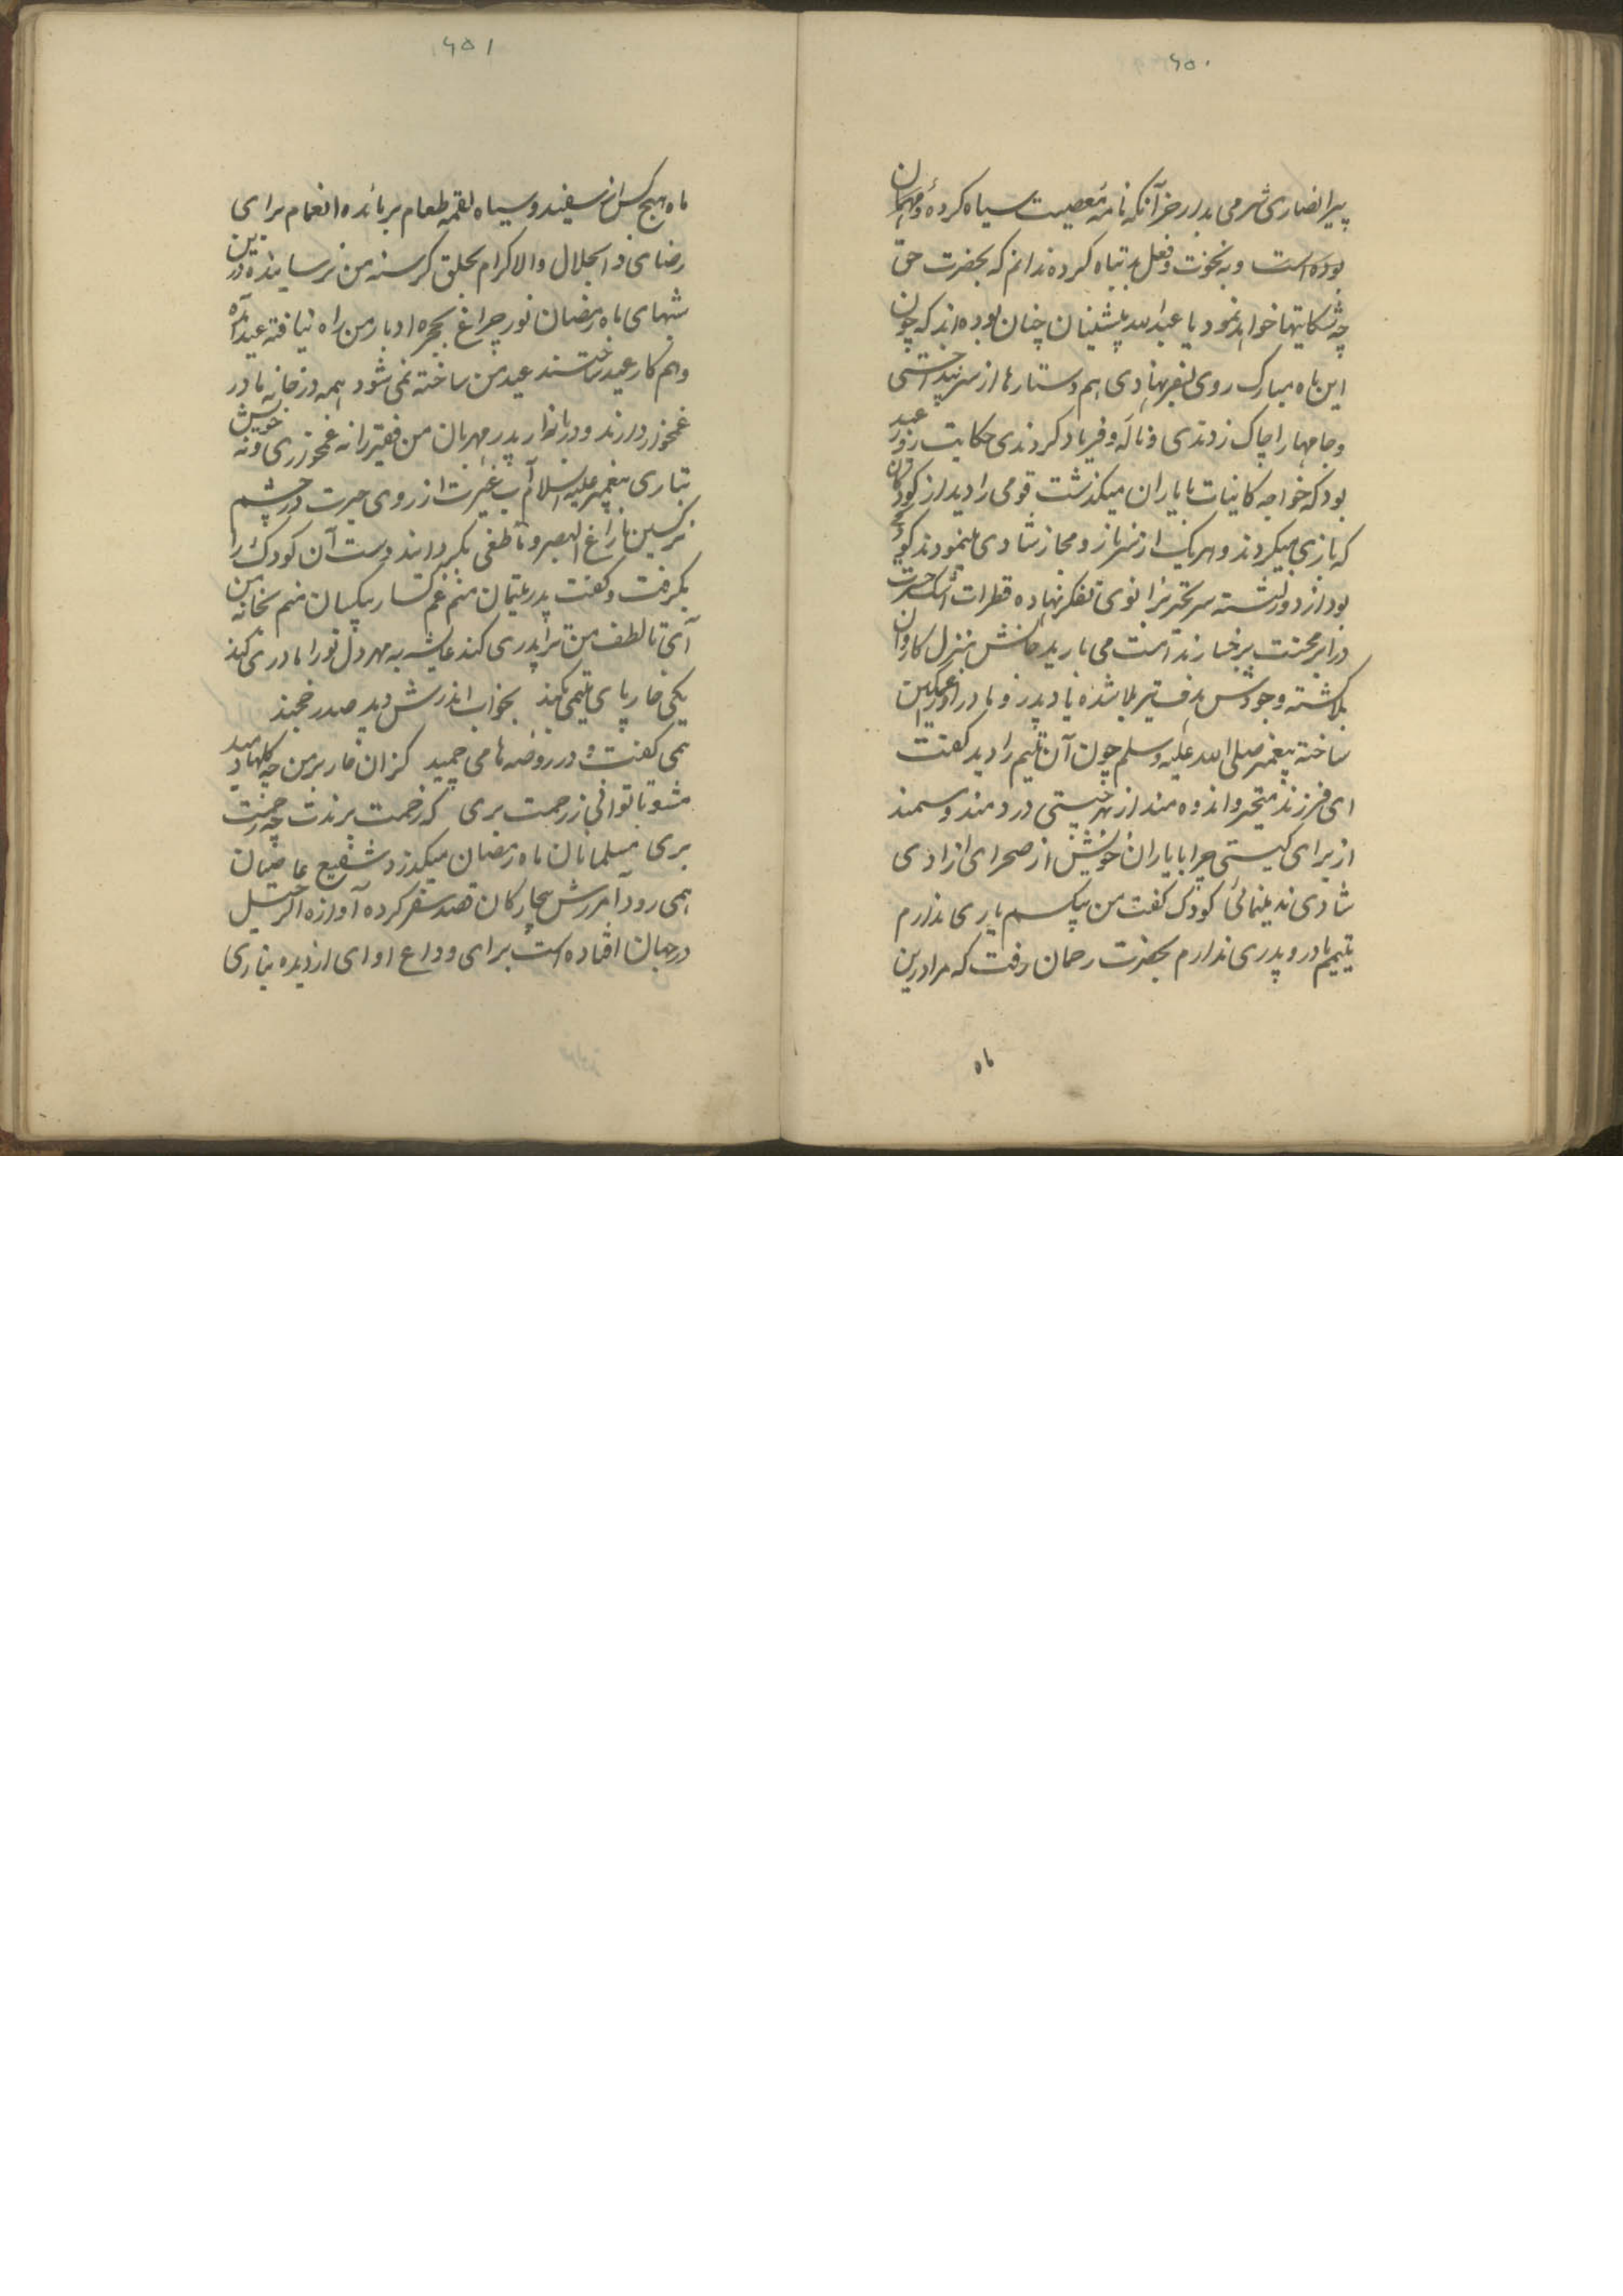 ۶۵۰
پیر انصاری شرمی بدار جز آنکه نامه معصیت سیاه کرده و مهمان
بوده است و به نخوت و فعل بد تباه کرده ندانم که بحضرت حق
چه شکایتها خواهد نمود یا عبدالله پیشینان چنان بوده اند که چون
این ماه مبارک روی بسفر نهادی هم دستارها از سر بینداختنی
وجامها را چاک زدندی و ناله و فریاد کردندی حکایت روز عید
بود که خواجه کاینات با یاران میگذشت قومی را دید از کودکان
که بازی میکردند و هر یک از سر ناز و مجاز شادی مینمودند کودکی
بود از دور نشسته سر تحیر بزانوی تفکر نهاده قطرات اشک حسرت
در ابر محنت بر رخسار ندامت می بارید جانش منزل کاروان
بلا گشته وجودش هدف تیر بلا شده یاد پدر و مادر او را غمگین
ساخته پیغمبر صلی الله علیه وسلم چون آن یتیم را دید گفت
ای فرزند متحیر و اندوه مند از بهر چیستی دردمند و سمند
از برای کیستی چرا با یاران خویش از صحرای ازادی
شادی نه ینمائی کودک گفت من بیکسم یاری ندارم
یتیم مادر و پدری ندارم بحضرت رحمان رفت که مرا درین
ماه
۶۵۱
ماه هیچ کس از سفید و سیاه لقمه طعام بر مائده انعام برای
رضای ذوالجلال والاکرام بحلق گرسنه من نرسانیده و درین
شبهای ماه رمضان نور چراغ بحجره ادبار من راه نیافته عید آمده
و هم کار عید ساختند عید من ساخته نمی شود همه در خانه مادر
غمخوار دارند و در بازار پدر مهربان من فقیر را نه غمخوری و نه خویش
تباری پیغمبر علیه السلام آب غیرت از روی حیرت در چشم
نرگسین مازاغ البصر و ماطغی بگردانید دست آن کودک را
بگرفت و گفت پدر یتیمان منم غم گسار بیکسان منم بخانه من
آی تا لطف من ترا پدری کند عایشه به مهر دل تو را مادری کند
یکی خار پای یتیمی بکند بخواب اندرش دید صدر خجند
همی گفت و در روضه ها می چمید کزان خار بر من چه گلها دمید
مشو تا توانی ز رحمت بری که رحمت برندت چو رحمت
بری مسلمانان ماه رمضان میگذرد شفیع عاصیان
همی رود آمرزش بیچارگان قصد سفر کرده آوازه الرحیل
در جهان افتاده است برای وداع او ای از دیده بباری